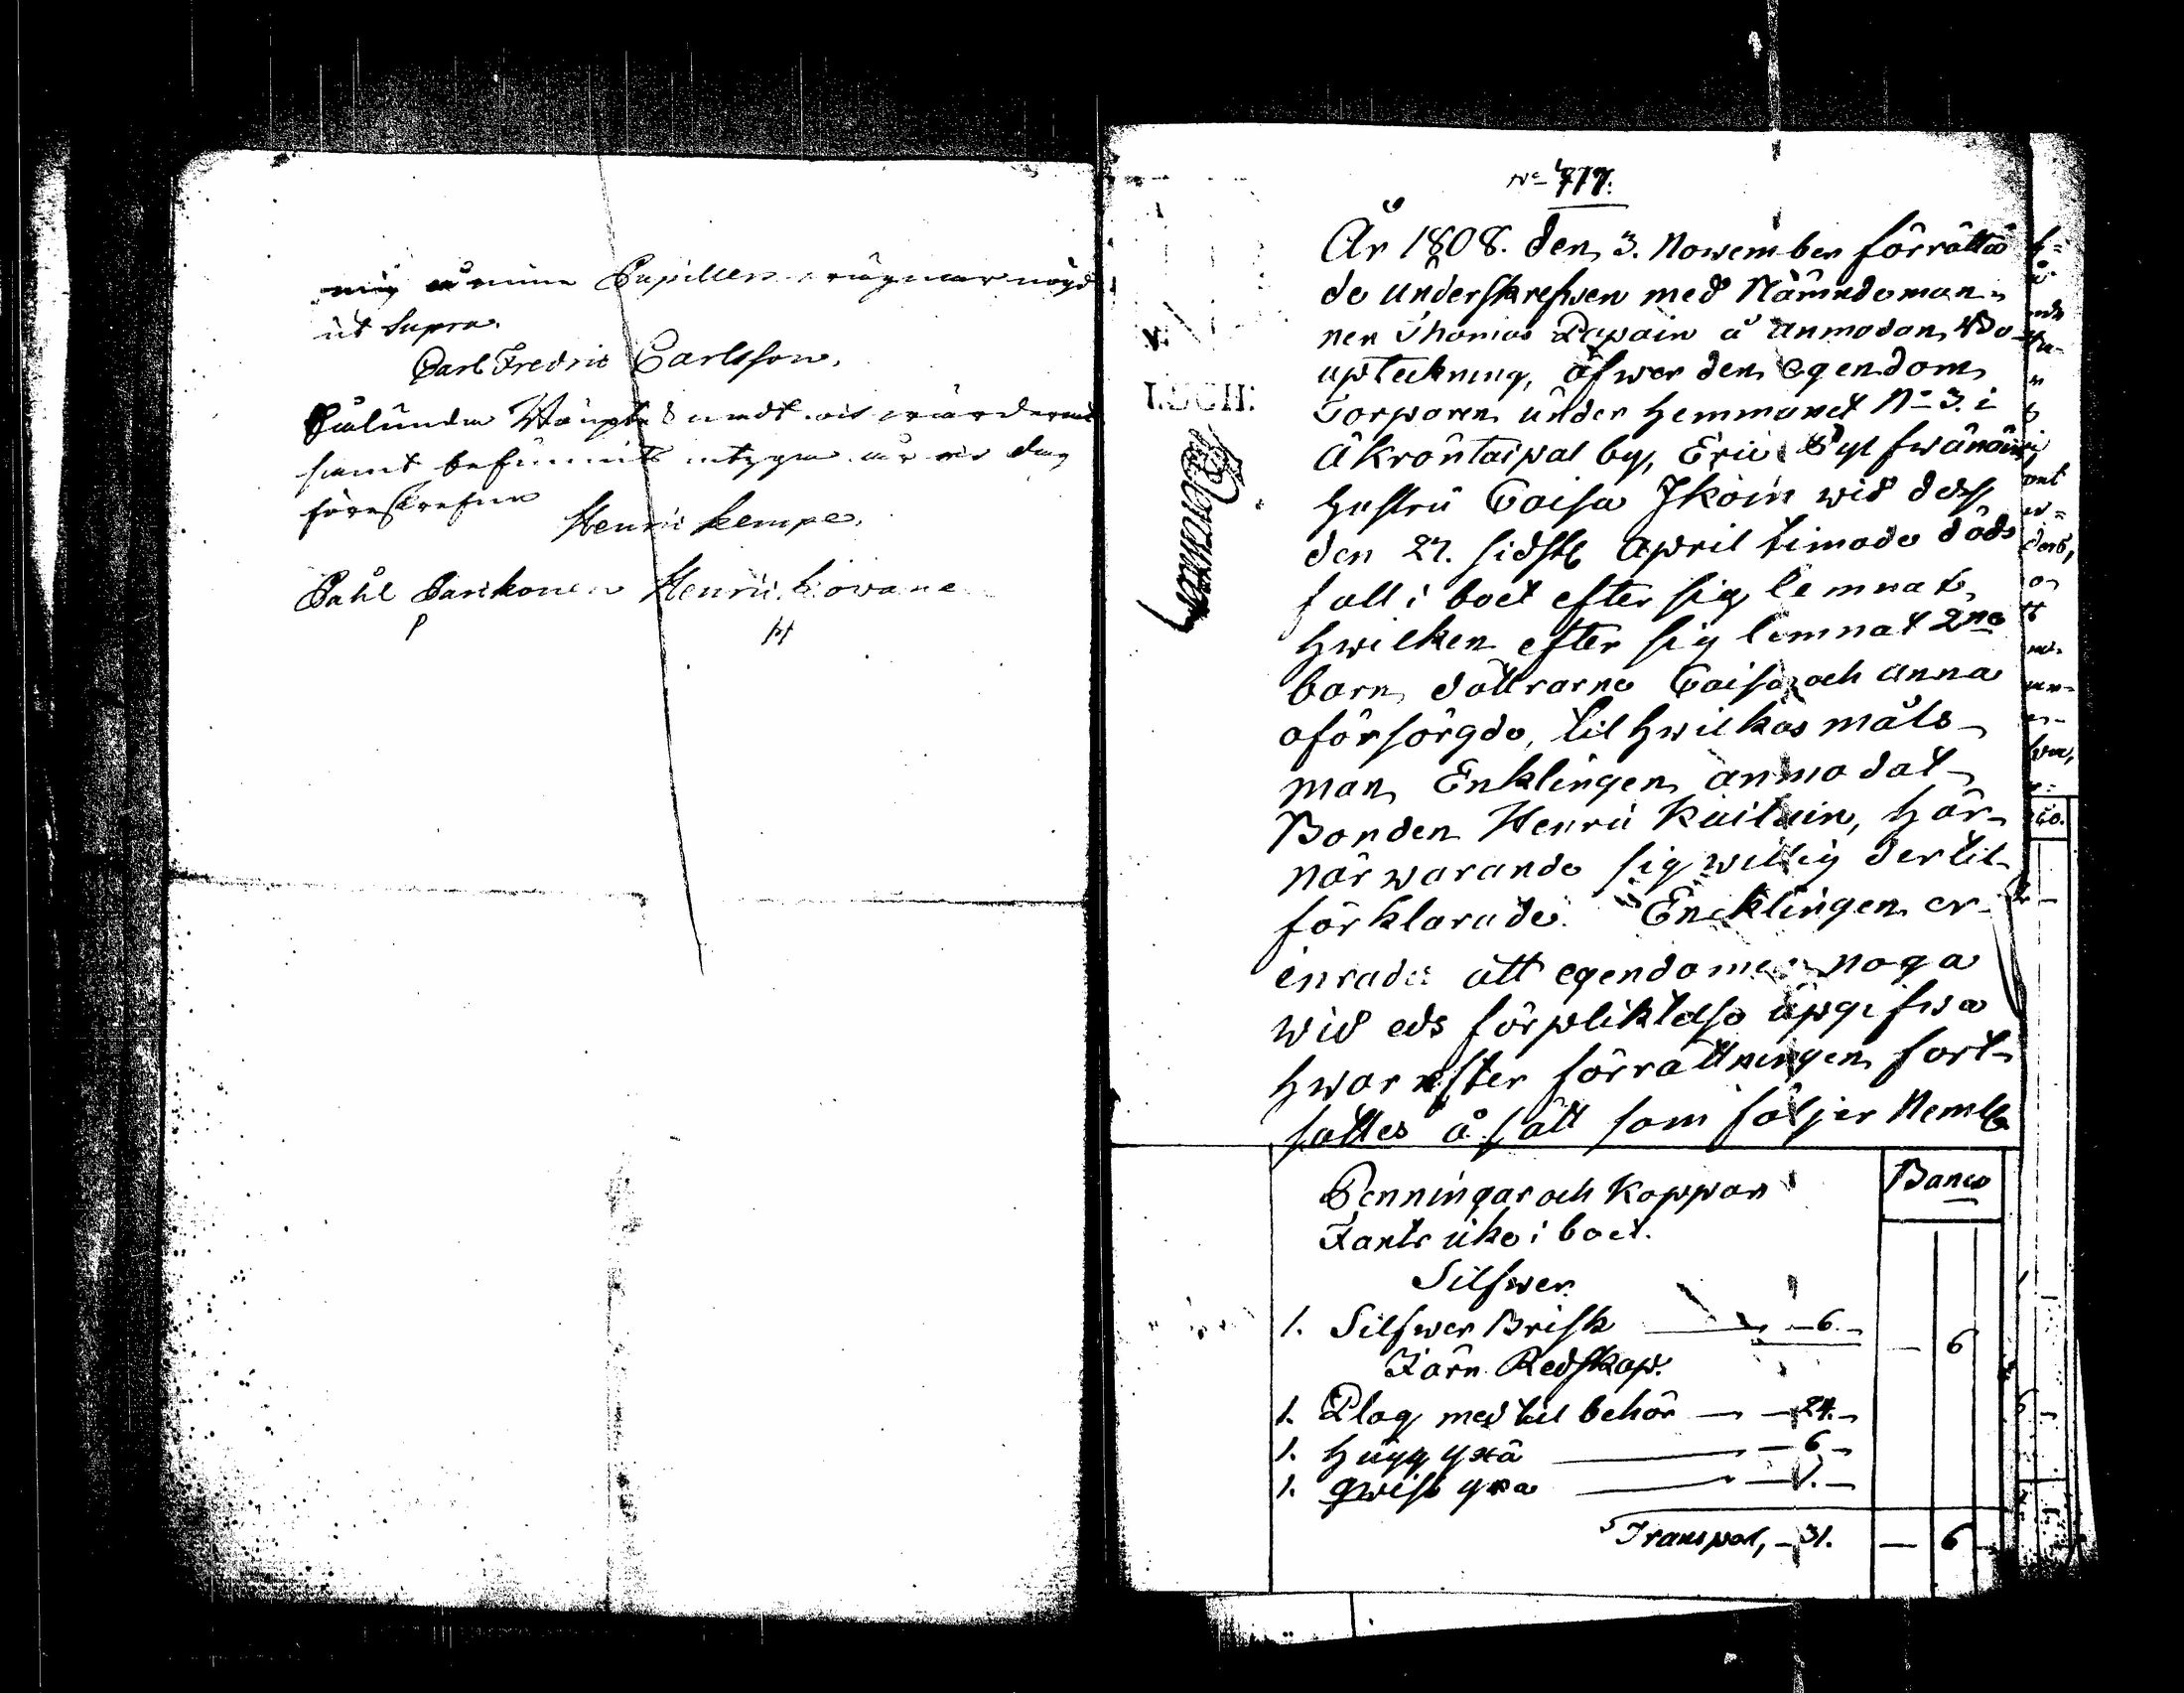 mig å mine Pupillers wägnar nögd
ut Supra.
Carl Fredric Carlsson.
Sålunda wara
samt befunnits intyga år och dag
föreskrefne
Henric Kempe.
Påhl Parikonen Henric
P H
No 717.
År 1808. den 3. November förrätta
de underskrefwen med Nämndeman-
nen Thomas Papain å anmodan, Bo
upteckning, öfwer den egendom
Torparen under Hemmanet No 3. i
Äkröntaipal by, Eric
Hustru Caisa Ikoin wid dess
den 27. sidstl April timade döds
fall i boet efter sig lemnat,
hwilken efter sig lemnat 2ne
barn, döttrarne Caisa och Anna
oförsörgde, til hwilkas måls-
man, Enklingen anmodat
Bonden Henric Kuitain, här-
närwarande sig willig dertil
förklarade. Encklingen er-
inrades att egendomen noga
wid eds förpliktelse upgifwa
hwarefter förrättningen fort-
sattes å sätt som följer Neml
Penningar och Koppar Banco
Fants icke i boet.
Silfwer
1. Silfwer Brisk — 6. — — 6
Järn Redskap.
1. Plog med til behör — — 24. —
1. Hugg yxa — 6 —
1. Qwist yxa — 1. —
Transport, — 31. — 6